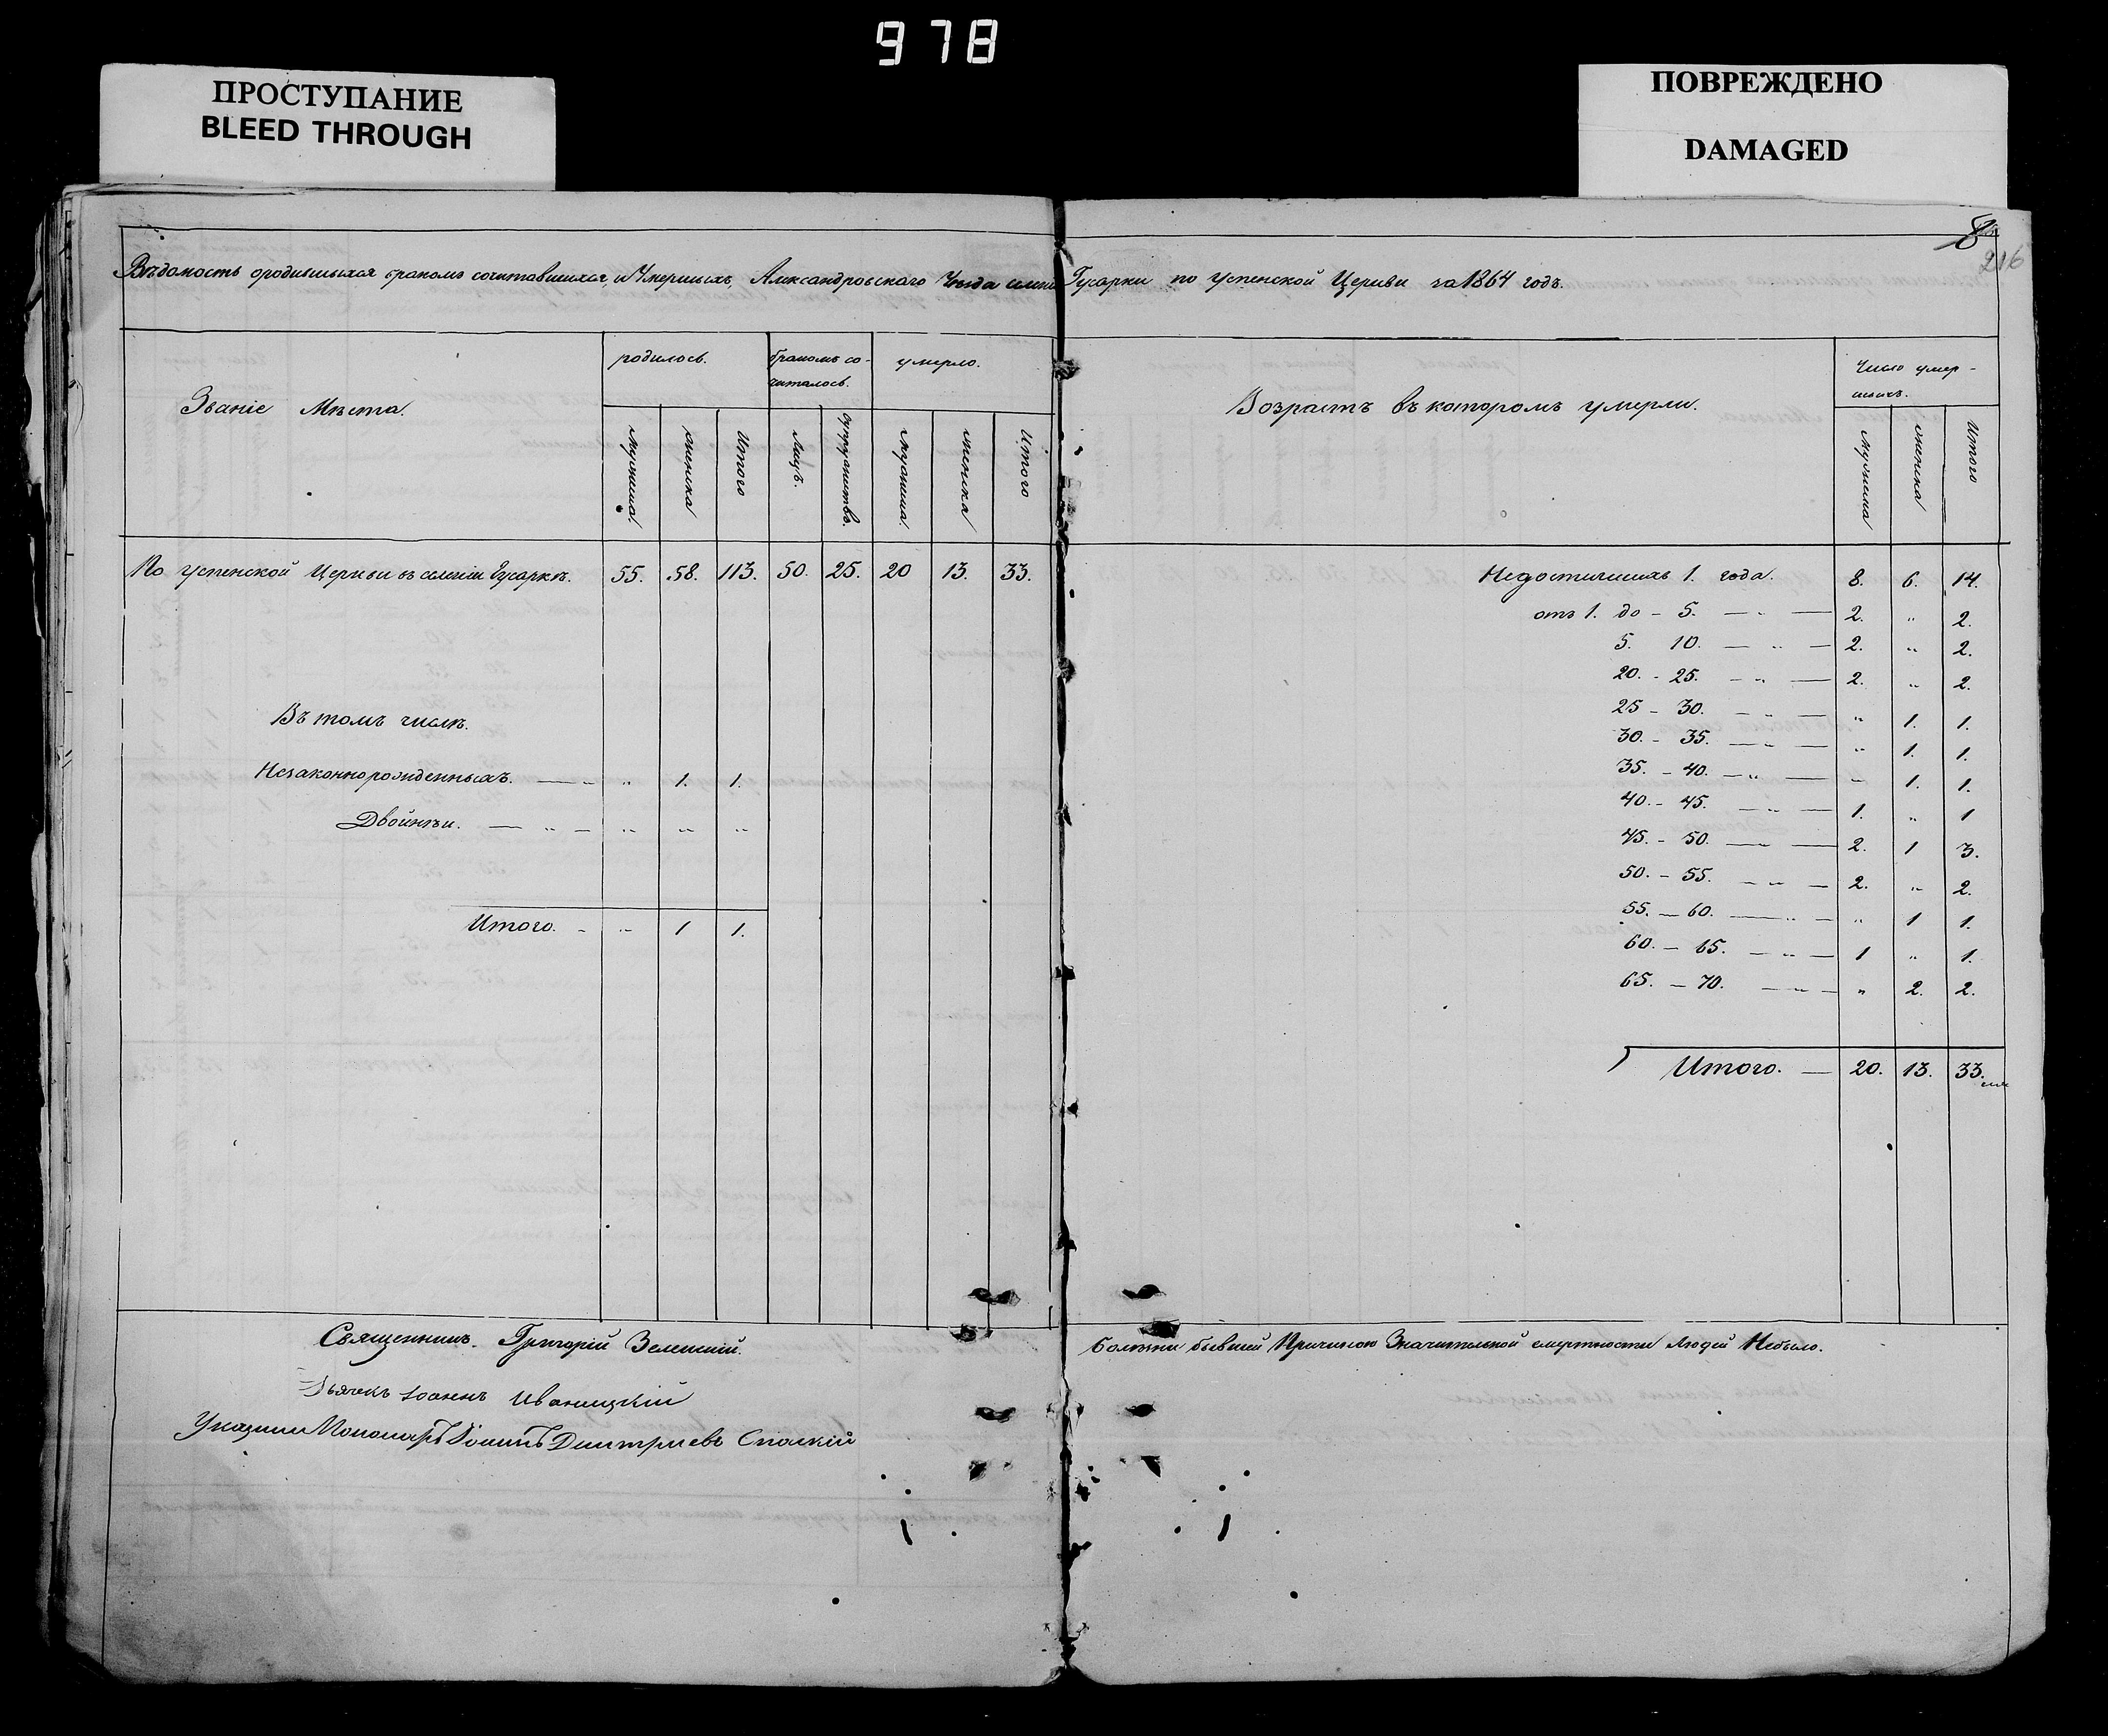 978
ПРОСТУПАНИЕ
BLEED THROUGH
ПОВРЕЖДЕНО
DAMAGED
8
216
Вѣдомость ородившыхся бракомъ сочитавшихся, и Умершыхъ, Александровского Уѣзда селенія Гусарки по Успенской Церкви за 1864 годъ.
Званіе Мѣста.
родилось.
бракомъ со-
читалось.
умерло.
Мужеска.
женска
Итого
Лицъ.
супружествъ.
мужеска.
женска
Итого
По Успенской Церкви въ селеніи Гусаркѣ. 55. 58. 113. 50. 25. 20 13. 33.
Въ томъ числѣ.
Незаконнорожденныхъ. — „ „ 1. 1.
Двойнѣи. — „ — „ „ „
Итого. - „ 1 1.
Священникъ. Григорій Зеленскій.
Дьячекъ Іоаннъ Иваницкій
Пономарь Дмитріевъ
Возрастъ въ которомъ умерли.
Число умер-
шихъ.
Мужеска
женска
Итого
Недостигшихъ 1. года. 8. 6. 14.
отъ 1. до - 5. — „ — 2. „ 2.
5. 10. — „ — 2. „ 2.
20. - 25. — „ — 2. „ 2.
25 - 30. — „ — „ 1. 1.
30. - 35. — „ — „ 1. 1.
35. - 40. — „ — „ 1. 1.
40. - 45. — „ — 1. „ 1
45. - 50. — „ — 2. 1 3.
50. - 55. — „ — 2. „ 2.
55. — 60. — „ — „ 1 1.
60. — 65. — „ — 1 „ 1.
65. — 70. — „ — „ 2. 2.
Итого. — 20. 13. 33.
Болѣзни бывшей Причиною Значительной смертности Людей Небыло.